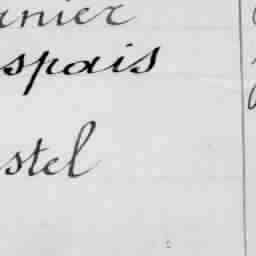 rnier
spais
stel